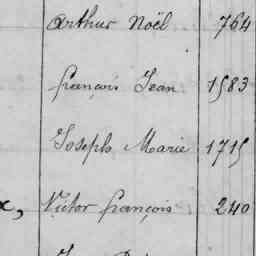 Arthur Noël 764
françois Jean 1583
Joseph Marie 1715
x, Victor françois 240